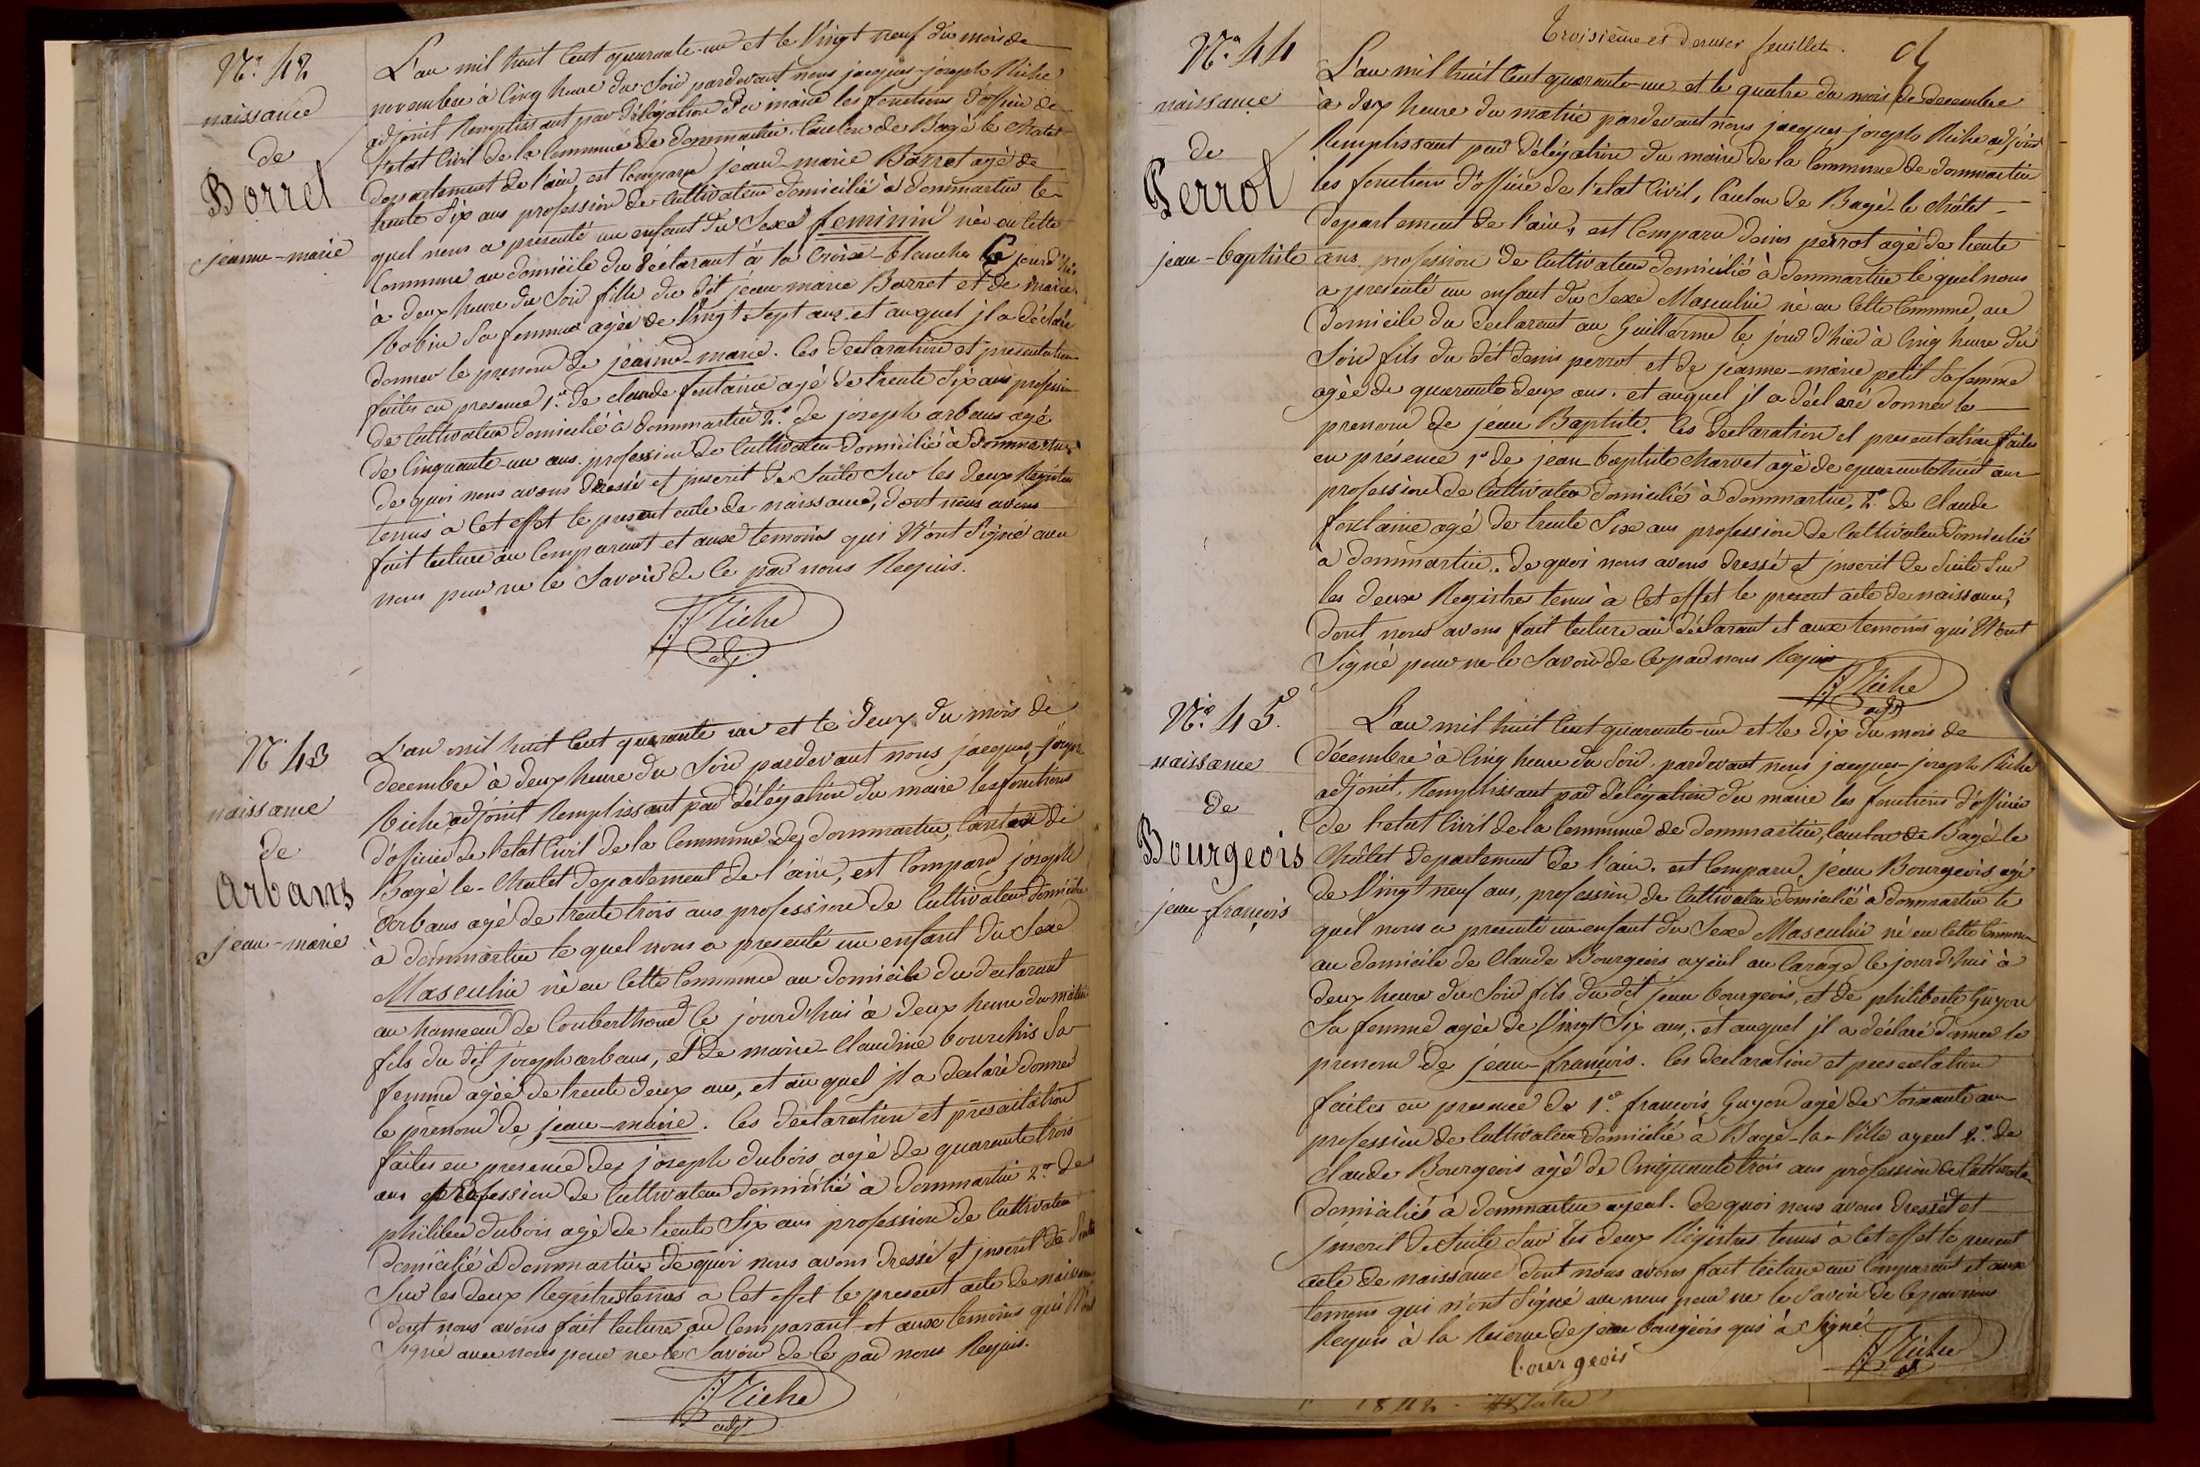 N.° 42
naissance
de
Borret
jeanne-marie
L'an mil huit Cent quarante-un et le Vingt neuf du mois de
novembre à Cinq heure du Soir pardevant nous jacques-joseph Riche
adjoint Remplissant par délégation du maire les fonctions d'officier de
l'etat Civil de la Commune de dommartin, Canton de Bagé le Chatel
departement de l'ain, est Comparu jean-marie Borret agé de
trente Six ans profession de Cultivateur domicilié à dommartin le
quel nous a presenté un enfant du Sexe feminin née en Cette
Commune au domicile du déclarant à la Croix-blanche Ce jourd'hui
à deux heure du Soir fille du dit jean marie Borret et de marie
Robin Sa femme agée de Vingt Sept ans, et auquel jl a déclaré
donner le prenom de jeanne-marie. Ces declaration et presentation
faites en presence 1.° de claude fontaine agé de trente Six ans profession
de Cultivateur domicilié à dommartin 2.° de joseph arbans agé
de Cinquante-un ans profession de Cultivateur domicilié à dommartin
de quoi nous avons dressé et jnscrit de Suite Sur les deux Registres
tenus à Cet effet le present acte de naissance, dont nous avons
fait lecture au Comparant et aux temoins qui N'ont Signé avec
nous pour ne le Savoir de Ce par nous Requis.
Riche
adj.
N.° 43
naissance
de
Arbans
jean-marie
L'an mil huit Cent quarante un et le deux du mois de
decembre à deux heure du Soir pardevant nous jacques-joseph
Riche adjoint Remplissant par délégation du maire les fonctions
d'officier de l'etat Civil de la Commune de dommartin, Canton de
Bagé le-Chatel departement de l'ain, est Comparu joseph
Arbans agé de trente trois ans profession de Cultivateur domicilié
à dommartin le quel nous a presenté un enfant du Sexe
Masculin né en Cette Commune au domicile du declarant
au hameau de Couberthoud Ce jourd'hui à deux heure du matin
fils du dit joseph arbans, et de marie-Claudine bourchis Sa
femme agée de trente deux ans, et au quel jl a declaré donner
le prenom de jean-marie. Ces declaration et presentation
faites en presence de joseph dubois agé de quarante trois
ans profession de Cultivateur domicilié à dommartin 2.° de
philibert dubois agé de trente Six ans profession de Cultivateur
domicilié à dommartin de quoi nous avons dressé et jnscrit de Suite
Sur les deux Registres tenus a Cet effet le present acte de naissance
dont nous avons fait lecture au Comparant et aux temoins qui N'ont
Signé avec nous pour ne le Savoir de Ce par nous Requis.
Riche
adj
Troisième et dernier feuillet.
N.° 44
naissance
de
Perrot
jean-baptiste
L'an mil huit Cent quarante-un et le quatre du mois de decembre
à dix heure du matin pardevant nous jacques-joseph Riche adjoint
Remplissant par délégation du maire de la Commune de dommartin
les fonctions d'officier de l'etat Civil, Canton de Bagé-le Châtel
departement de l'ain, est Comparu denis perrot agé de trente
ans profession de Cultivateur domicilié à dommartin le quel nous
a presenté un enfant du Sexe Masculin né en Cette Commune, au
domicile du declarant au Guillerme le jour d'hier à Cinq heure du
Soir fils du dit denis perrot et de jeanne-marie petit Sa femme
agée de quarante deux ans. et auquel jl a déclaré donner le
prenom de jean Baptiste. Ces declaration et presentation faites
en présence 1° de jean-baptiste Charvet agé de quarante huit ans
profession de Cultivateur domicilié à dommartin, 2.° de Claude
fontaine agé de trente Six ans profession de Cultivateur domicilié
à dommartin. de quoi nous avons dressé et jnscrit de Suite Sur
les deux Registres tenus à Cet effet le present acte de naissance,
dont nous avons fait lecture au déclarant et aux temoins qui N'ont
Signé pour ne le Savoir de Ce par nous Requis
Riche
adj
N.° 45.
naissance
de
Bourgeois
jean-françois
L'an mil huit Cent quarante-un et le dix du mois de
décembre à Cinq heure du Soir, pardevant nous jacques-joseph Riche
adjoint, Remplissant par délégation du maire les fonctions d'officier
de l'etat Civil de la Commune de dommartin, Canton de Bagé-le
Châtel departement de l'ain. est Comparu, jean Bourgeois agé
de Vingt neuf ans, profession de Cultivateur domicilié à dommartin le
quel nous a presenté un enfant du Sexe Masculin né en Cette Commune
au domicile de Claude Bourgeois ayeul au Carage le jourd'hui à
deux heure du Soir fils du dit jean bourgeois, et de philiberte Guyon
Sa femme agée de Vingt Six ans, et auquel jl a déclaré donner le
prenom de jean-françois. Ces declaration et presentation
faites en presence de 1.° françois Guyon agé de Soixante ans
profession de Cultivateur domicilié à Bagé-la-Ville ayeul 2.° de
Claude Bourgeois agé de Cinquante trois ans profession de Cultivateur
domiciliés à dommartin ayeul. de quoi nous avons dressé et
jnscrit de Suite Sur les deux Registres tenus à Cet effet le present
acte de naissance dont nous avons fait lecture au Comparant et aux
temoins qui n'ont Signé avec nous pour ne le Savoir de Ce par nous
Requis à la Reserve de jean bourgeois qui à Signé
bourgeois
Riche
adj
1842